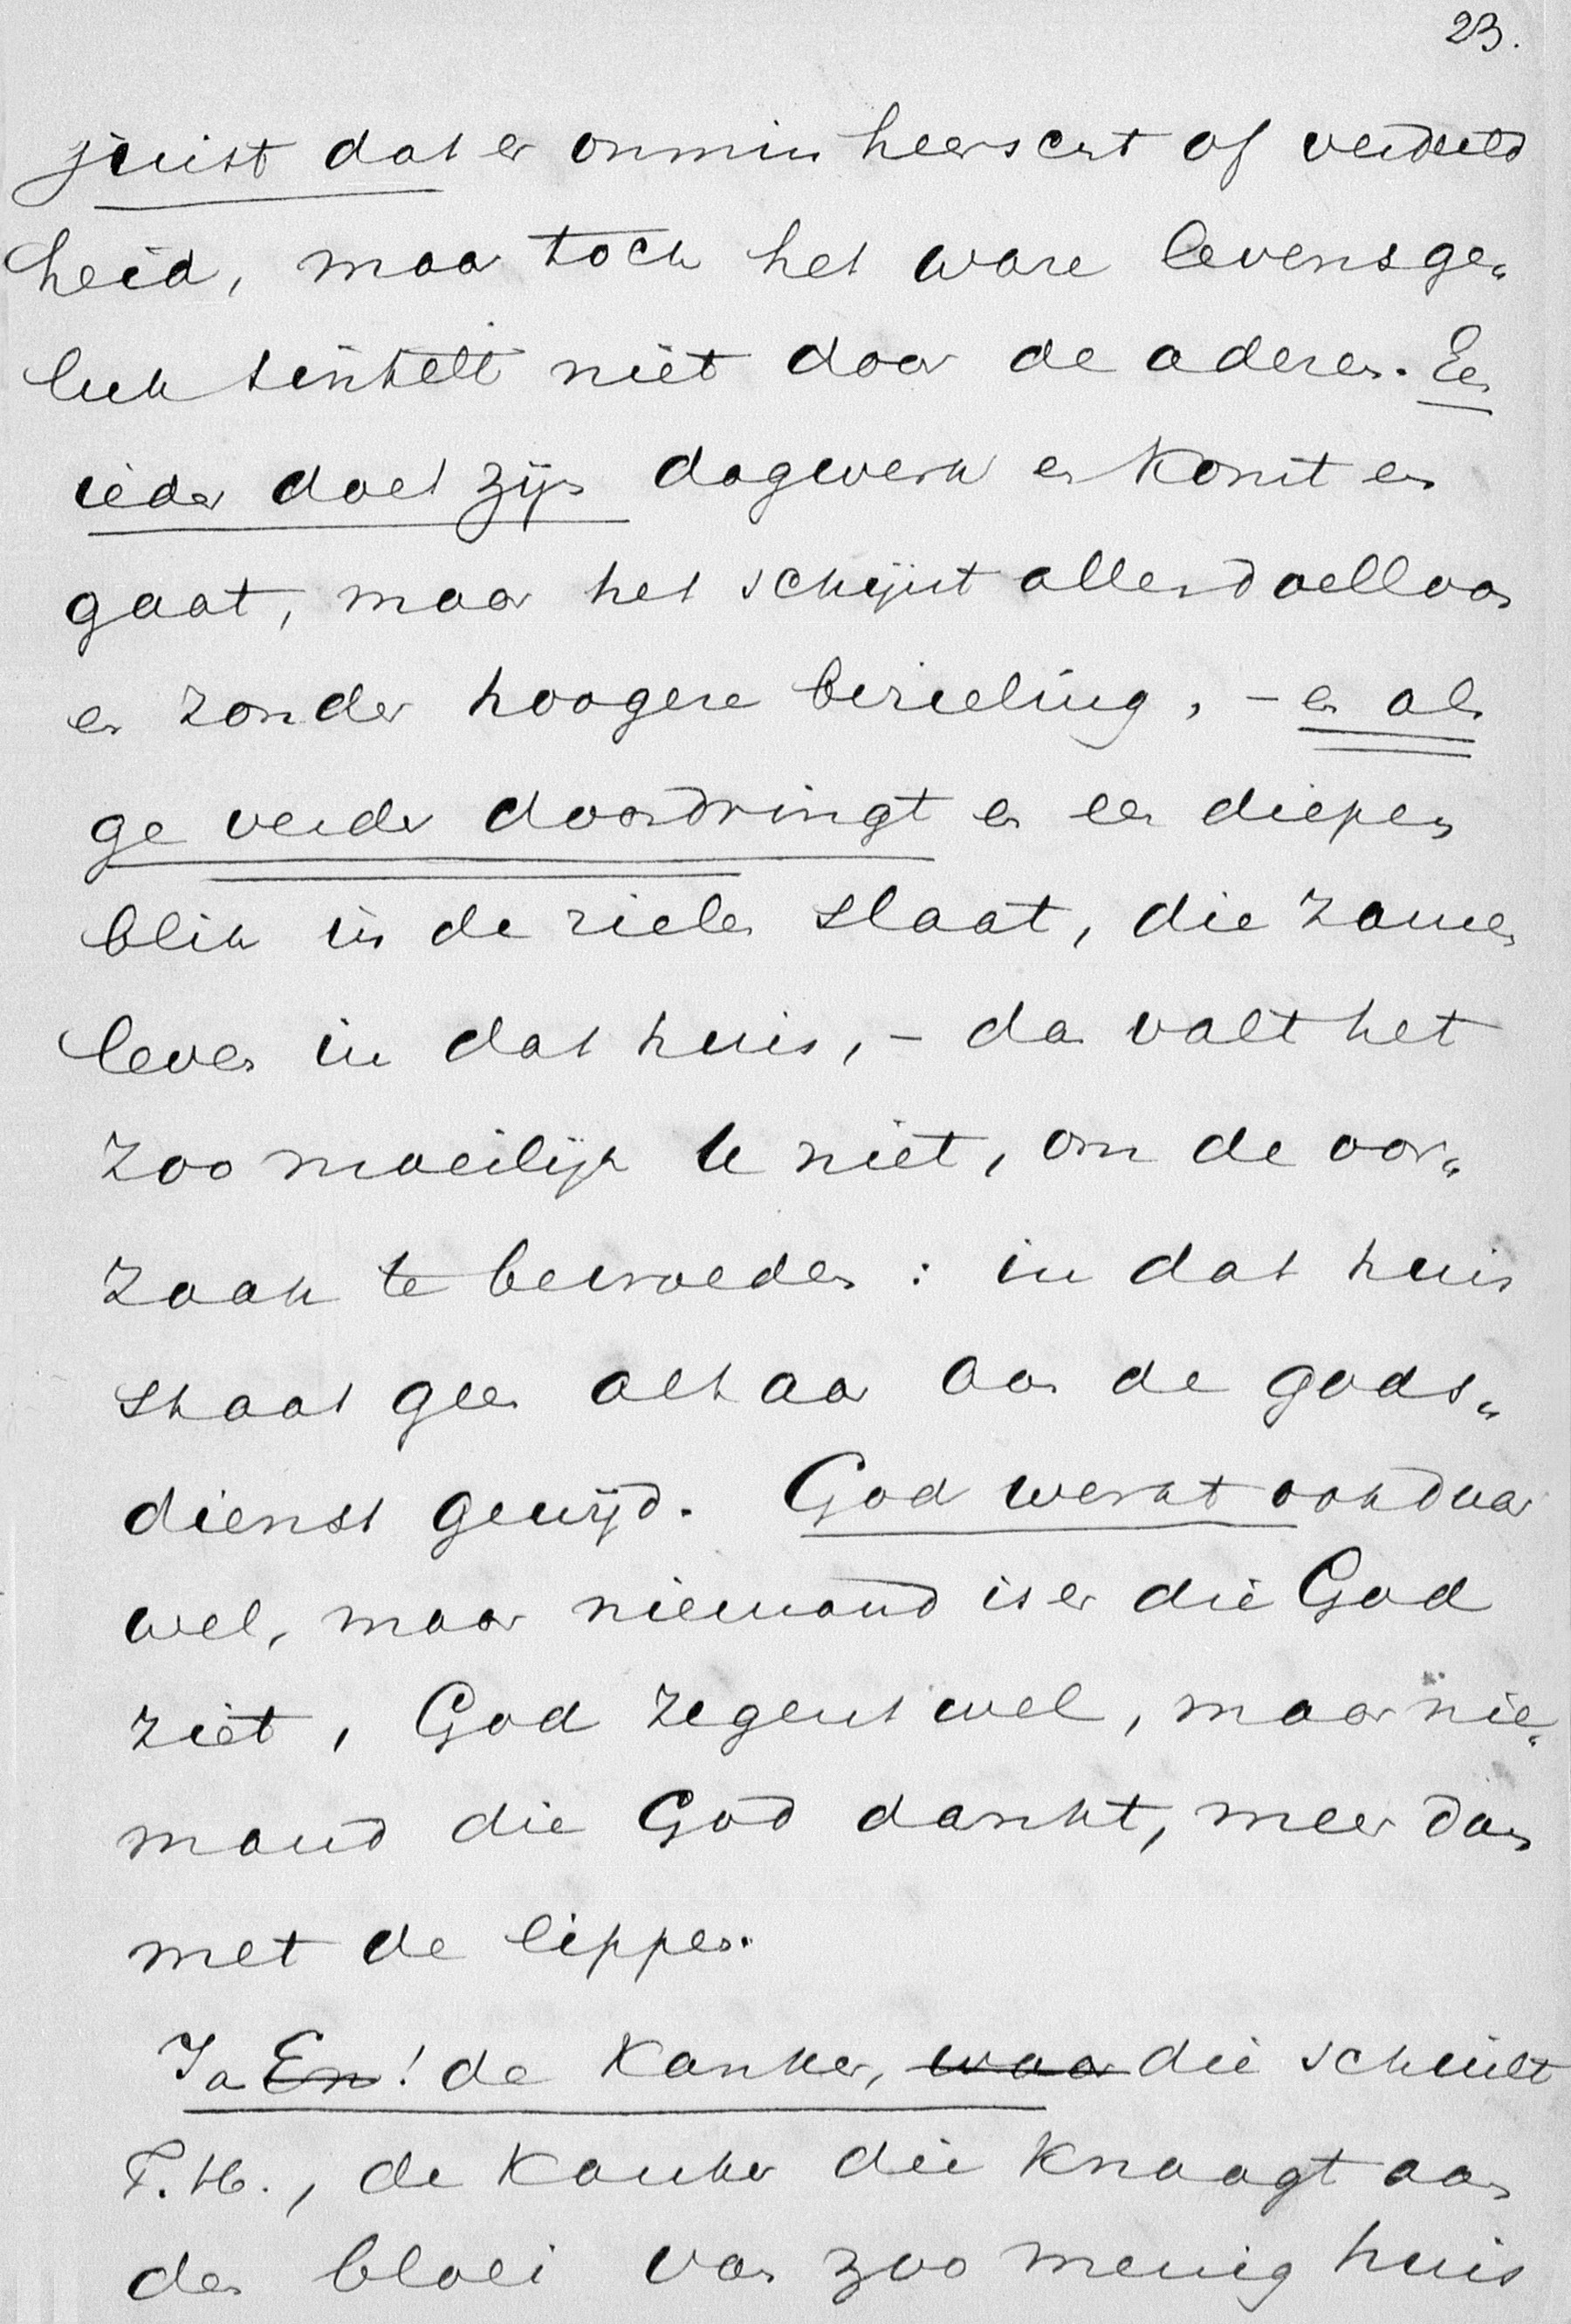 23.
juist dat er onmin heerscht of verdeeld
heid, maar toch het ware levensge„
luk tintelt niet door de aderen. Een
ieder doet zijn dagwerk en komt en
gaat, maar het schijnt alles doelloos
en zonder hoogere bezieling, – en als
ge verder doordringt en een diepen
blik in de zielen slaat, die zamen
leven in dat huis, – dan valt het
zoo moeilijk U niet, om de oor„
zaak te bevroeden : in dat huis
staat geen altaar aan de gods„
dienst gewijd. God werkt ook daar
wel, maar niemand is er die God
ziet, God zegent wel, maar nie„
mand die God dankt, meer dan
met de lippen.
Ja En! de kanker, waar die schuilt
T.H., de kanker die knaagt aan
den bloei van zoo menig huis